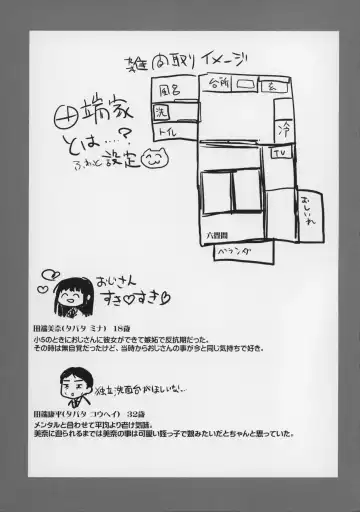 雑間取りイメージ
田端家
とは……?
ふわっと設定
風呂
洗
トイレ
台所
玄
冷
TV
おしいれ
六畳間
ベランダ
おじさん
すき♡すき♡
田端美奈(タバタ ミナ) 18歳
小5のときにおじさんに彼女ができて嫉妬で反抗期だった。
その時は無自覚だったけど、当時からおじさんの事が今と同じ気持ちで好き。
独立洗面台がほしいな…
田端康平(タバタ コウヘイ) 32歳
メンタルと合わせて平均より老け気味。
美奈に迫られるまでは美奈の事は可愛い姪っ子で親みたいだとちゃんと思っていた。